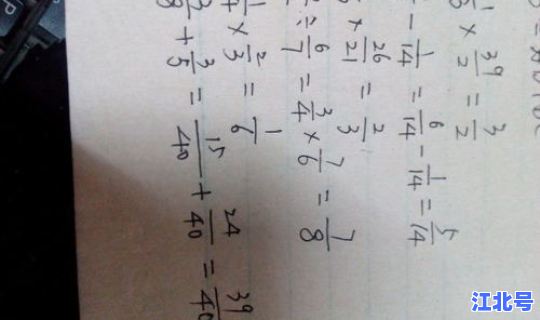 × 39/2 = 3/2
- 1/14 = 6/14 - 1/14 = 5/14
× 26/21 = 2/3
÷ 6/7 = 3/4 × 7/6 = 7/8
1/4 × 2/3 = 1/6
3/8 + 3/5 = 15/40 + 24/40 = 39/40
江北号